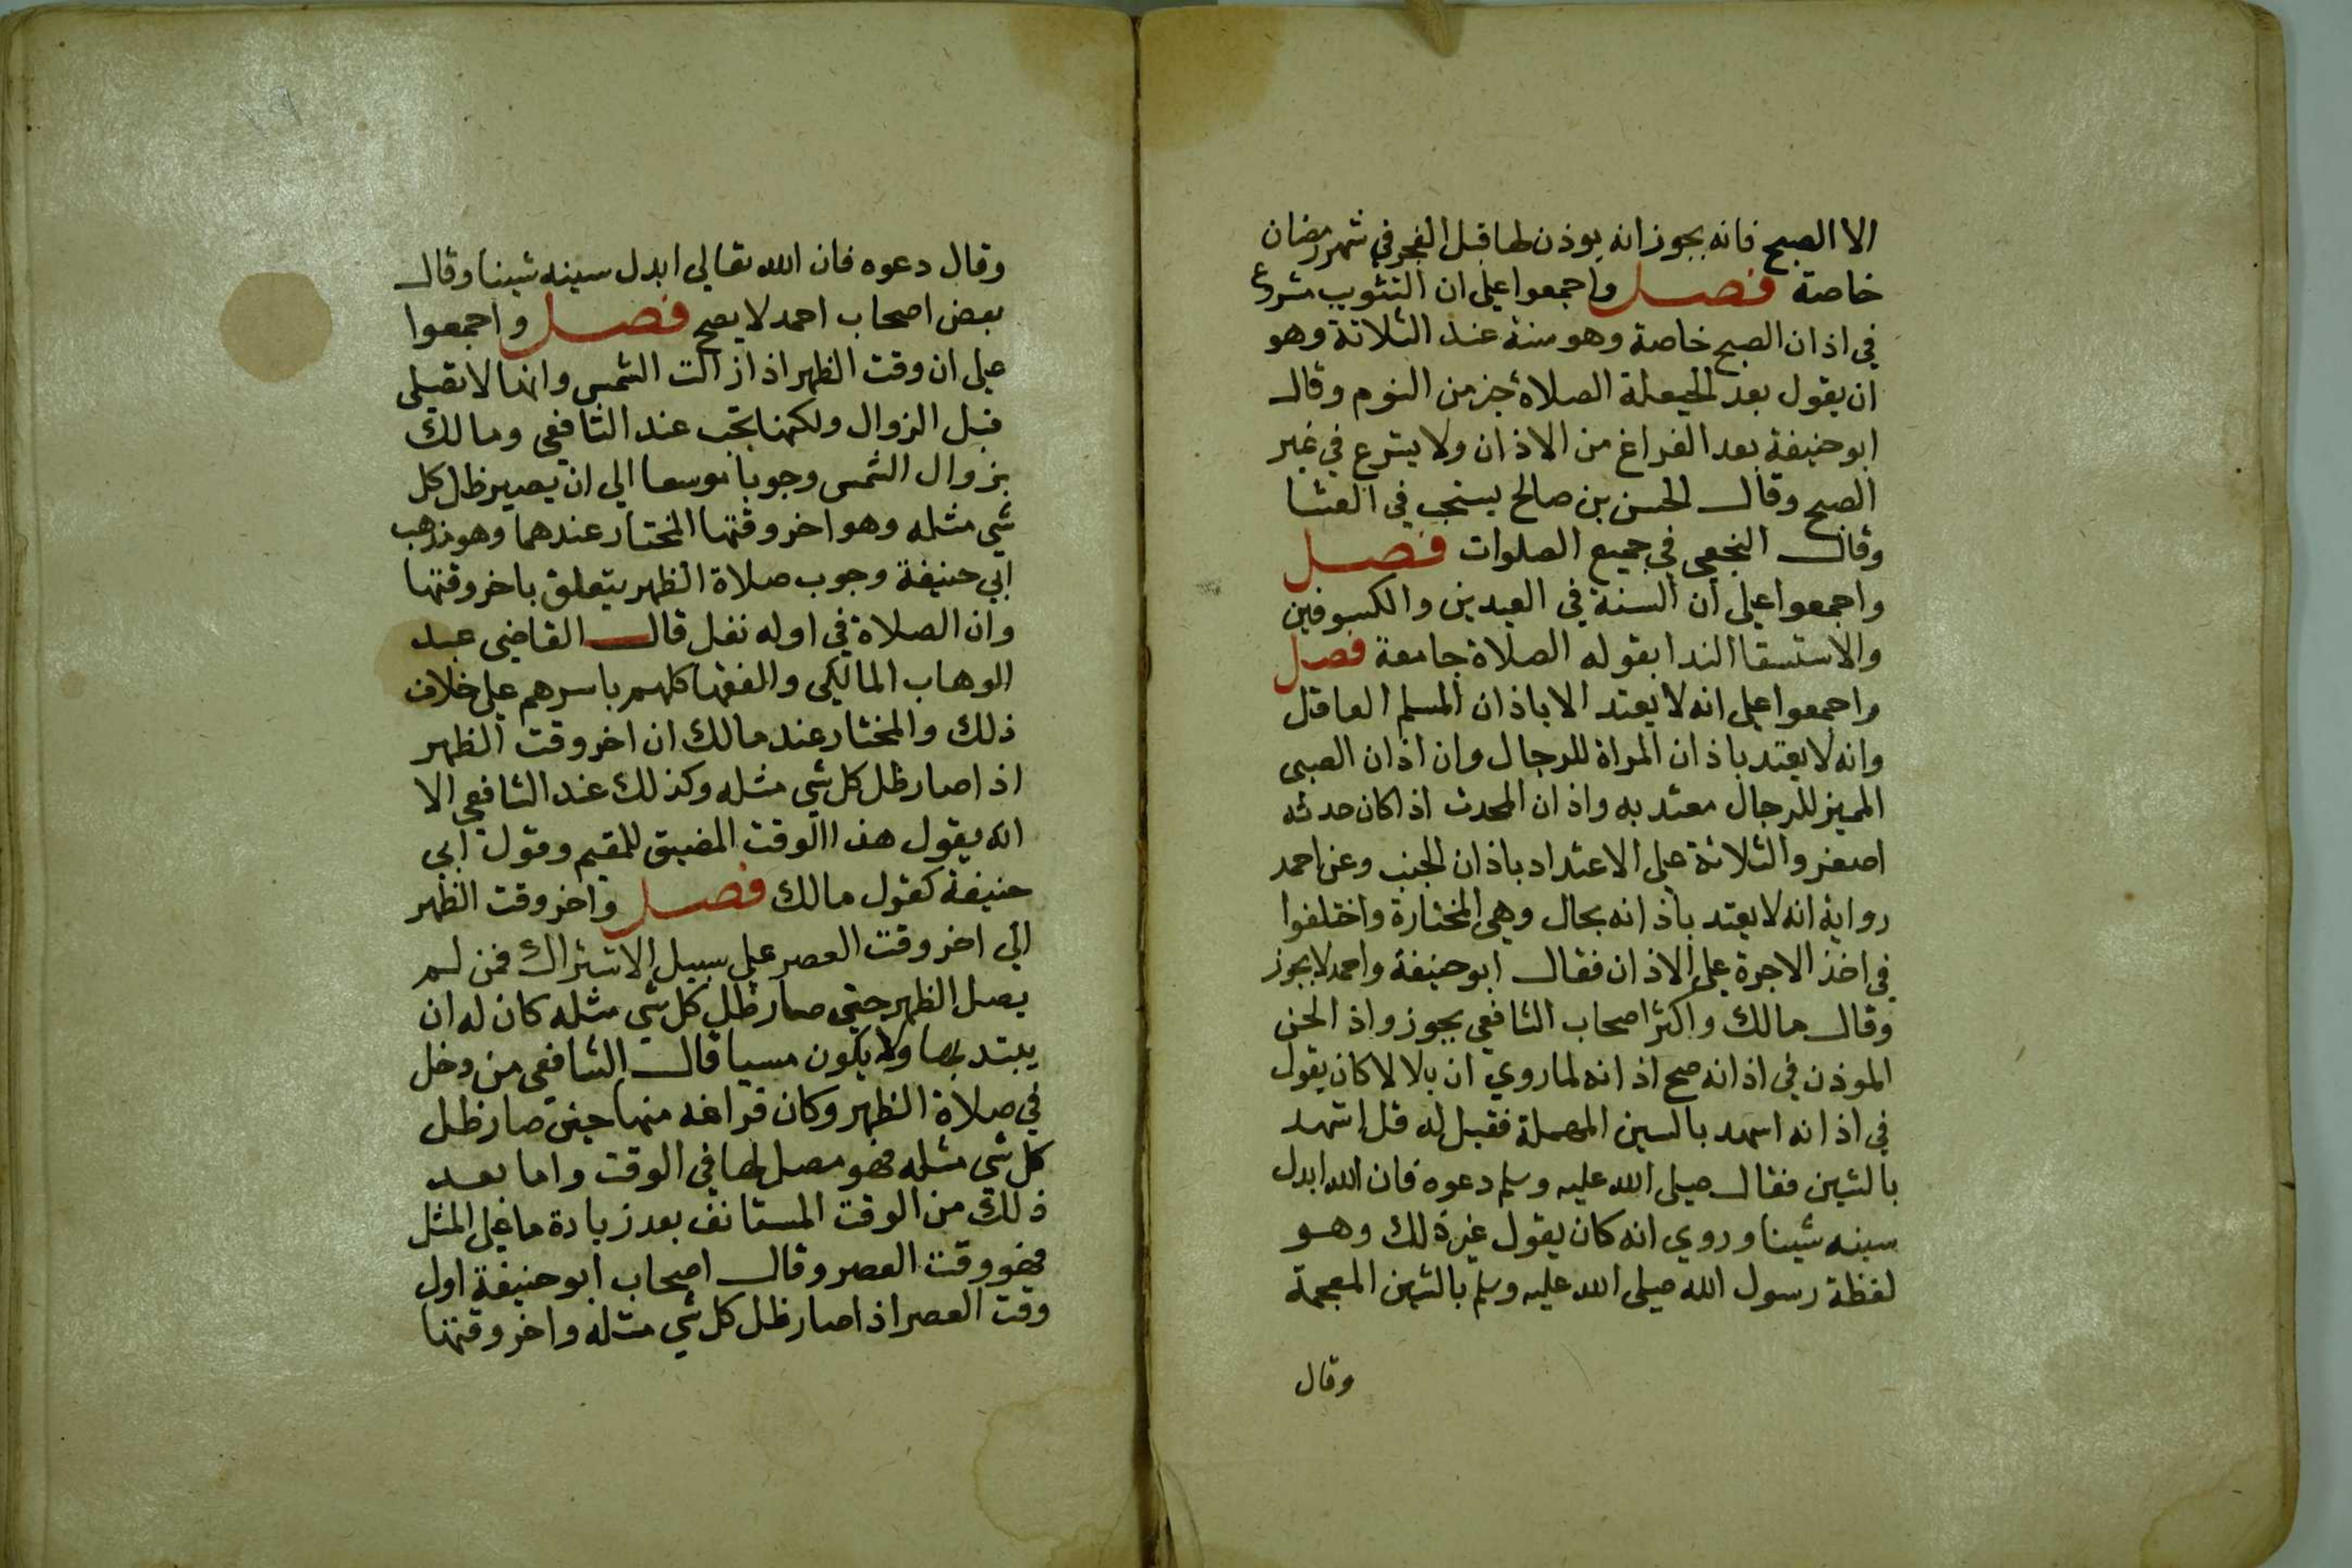 الا الصبح فانه يجوز انه يوذن لها قبل الفجر في شهر رمضان
خاصة فصل واجمعوا على ان التثويب مشروع
في اذان الصبح خاصة وهو سنة عند الثلاثة وهو
ان يقول بعد الحيعلة الصلاة خير من النوم وقال
ابو حنيفة بعد الفراغ من الاذان ولا يشرع في غير
الصبح وقال الحسن بن صالح يستحب في العشا
وقال النخعي في جميع الصلوات فصل
واجمعوا على ان السنة في العيدين والكسوفين
والاستسقا الندا بقوله الصلاة جامعة فصل
واجمعوا على انه لا يعتد الا باذان المسلم العاقل
وانه لا يعتد باذان المراة للرجال وان اذان الصبي
المميز للرجال معتد به واذان المحدث اذا كان حدثه
اصغر والثلاثة على الاعتداد باذان الجنب وعن احمد
رواية انه لا يعتد باذانه بحال وهي المختارة واختلفوا
في اخذ الاجرة على الاذان فقال ابو حنيفة واحمد لا يجوز
وقال مالك واكثر اصحاب الشافعي يجوز واذ الحن
الموذن في اذانه صح اذانه لما روي ان بلالا كان يقول
في اذانه اسهد بالسين المهملة فقيل له قل اشهد
بالشين فقال صلى الله عليه وسلم دعوه فان الله ابدل
سينه شينا وروي انه كان يقول غير ذلك وهو
لفظة رسول الله صلى الله عليه وسلم بالشين المعجمة
وقال
وقال دعوه فان الله تعالي ابدل سينه شينا وقال
بعض اصحاب احمد لا يصح فصل واجمعوا
على ان وقت الظهر اذا زالت الشمس وانها لا تصلى
قبل الزوال ولكنها تجب عند الشافعي ومالك
بزوال الشمس وجوبا موسعا الي ان يصير ظل كل
شي مثله وهو اخر وقتها المختار عندهما وهو مذهب
ابي حنيفة وجوب صلاة الظهر يتعلق باخر وقتها
وان الصلاة في اوله نفل قال القاضي عبد
الوهاب المالكي والفقها كلهم باسرهم على خلاف
ذلك والمختار عند مالك ان اخر وقت الظهر
اذا صار ظل كل شي مثله وكذلك عند الشافعي الا
انه يقول هذا الوقت المضيق للمقيم وقول ابي
حنيفة كقول مالك فصل واخر وقت الظهر
الي اخر وقت العصر على سبيل الاشتراك فمن لم
يصل الظهر حتى صار ظل كل شي مثله كان له ان
يبتد بها ولا يكون مسيا قال الشافعي من دخل
في صلاة الظهر وكان فراغه منها حين صار ظل
كل شي مثله فهو مصل لها في الوقت واما بعد
ذلك من الوقت المستانف بعد زيادة ما على المثل
فهو وقت العصر وقال اصحاب ابو حنيفة اول
وقت العصر اذا صار ظل كل شي مثله واخر وقتها